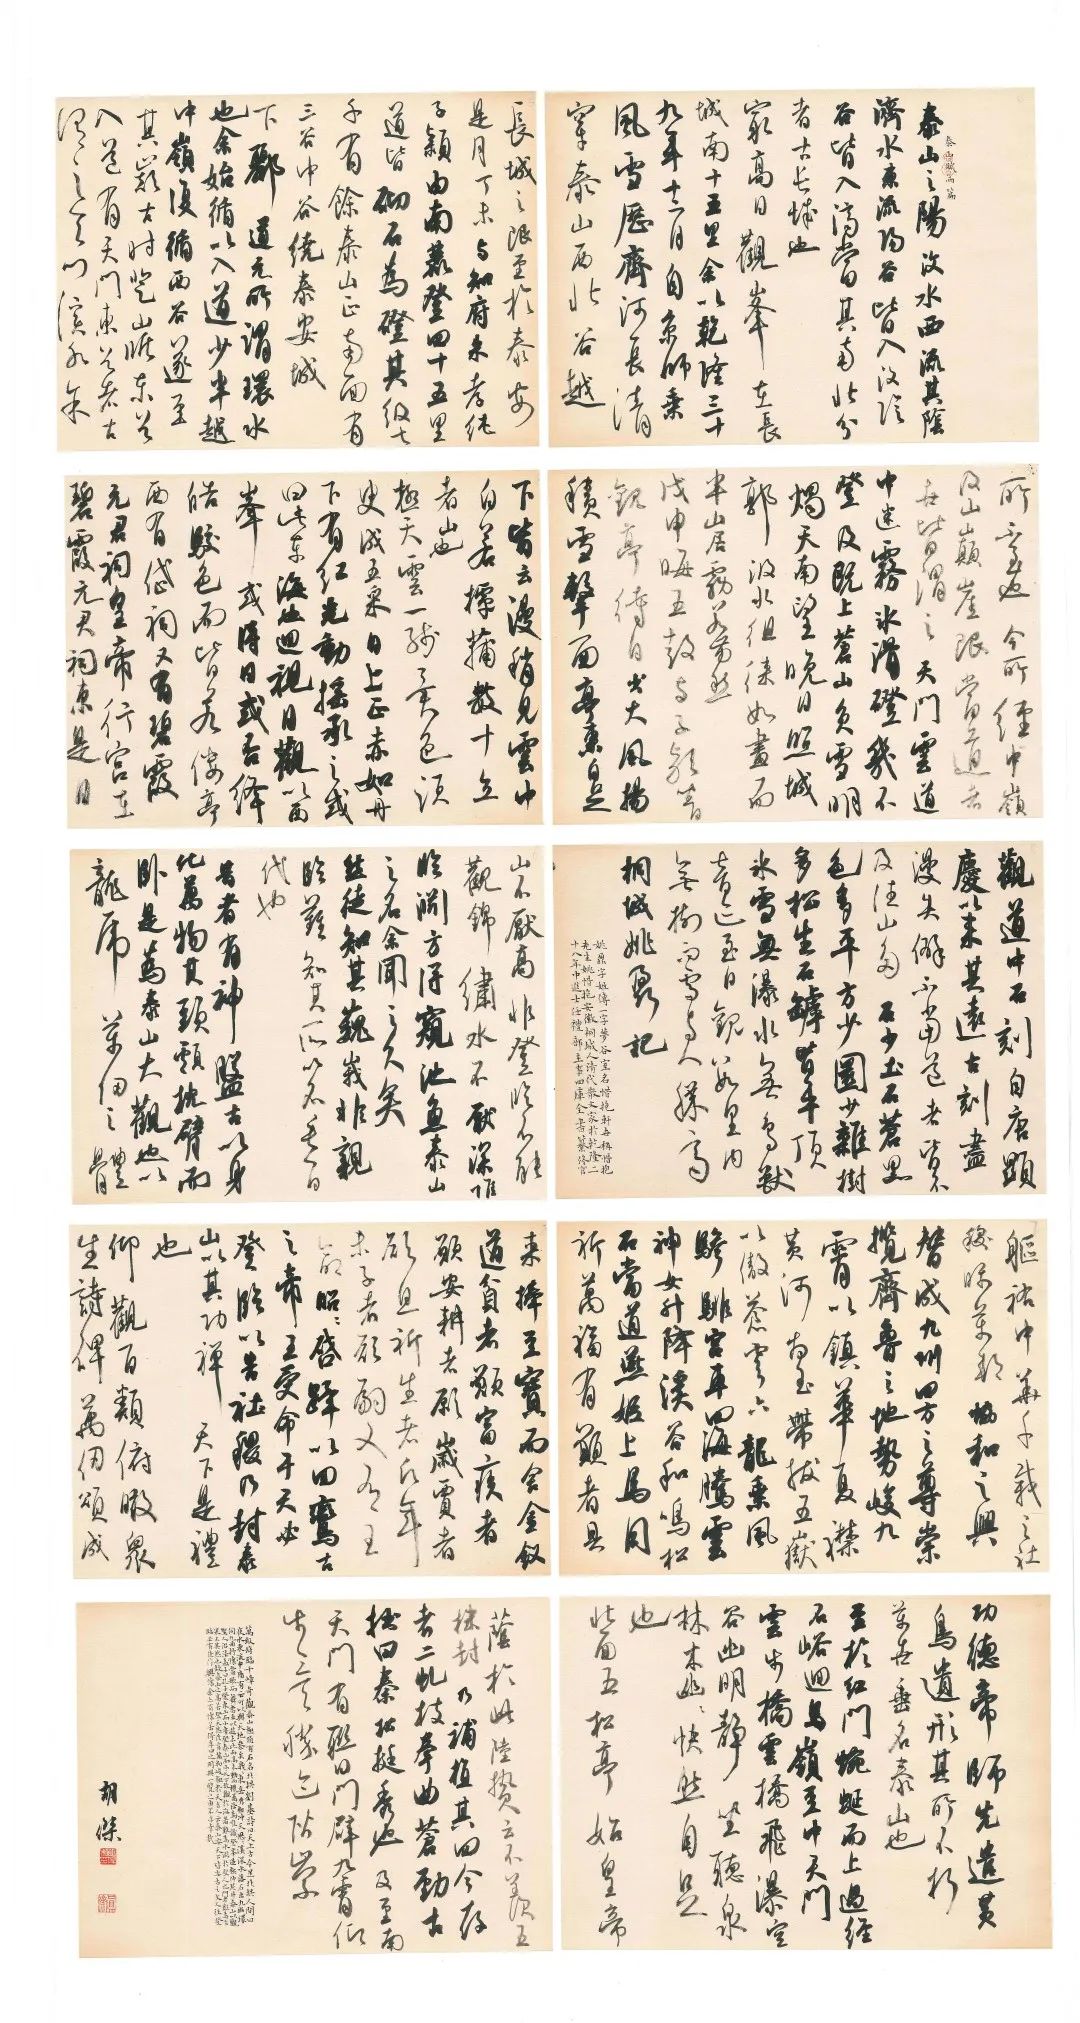 泰山之陽汶水西流其陰
濟水東流陽谷皆入汶陰
谷皆入濟當其南北分
者古長城也
最高日觀峯在長
城南十五里余以乾隆三十
九年十二月自京師乘
風雪歷齊河長清
穿泰山西北谷越
長城之限至於泰安
是月丁未與知府朱孝純
子潁由南麓登四十五里
道皆砌石為磴其級七
千有餘泰山正南面有
三谷中谷繞泰安城
下酈道元所謂環水
也余始循以入道少半越
中嶺復循西谷遂至
其巔古時登山循東谷
入道有天門東谷者古
謂之天門溪水余
所不至也今所經中嶺
及山巔崖限當道者
世皆謂之天門雲道
中迷霧冰滑磴幾不
登及既上蒼山負雪明
燭天南望晚日照城
郭汶水徂徠如畫而
半山居霧若帶然
戊申晦五鼓與子潁
觀亭待日出大風揚
積雪擊面亭東自足
下皆雲漫稍見雲中
白若摴蒱數十立
者山也
極天雲一線異色須
臾成五采日上正赤如丹
下有紅光動搖承之或
曰此東海也迴視日觀以西
峯或得日或否絳
皓駁色而皆若僂亭
西有岱祠又有碧霞
元君祠皇帝行宮在
碧霞元君祠東是日
觀道中石刻自唐顯
慶以來其遠古刻盡
漫失僻不當道者皆不
及往山多石少土石蒼黑
色多平方少圜少雜樹
多松生石罅皆平頂
冰雪無瀑水無鳥獸
音迹至日觀數里內
無樹而雪與人膝齊
桐城姚鼐記
姚鼐字姬傳一字夢谷室名惜抱軒世稱惜抱
先生姚惜抱安徽桐城人清代散文家於乾隆二
十八年中進士任禮部主事四庫全書纂修官
山不厭高非登臨不能
觀錦繡水不厭深唯
臨淵方得窺池魚泰山
之名余聞之久矣
然徒知其巍峩非親
臨難知其所以名垂百
代也
昔者有神盤古以身
化萬物其頭顱枕臂而
臥是為泰山大觀也以
龍席萬仞之體
軀祐中華千載之社
稷脉萬邦協和之興
替成九州四方之尊崇
攬齊魯之地勢峻九
霄以鎮華夏襟
黃河玉帶拔五嶽
以傲蒼穹六龍乘風
驂騑宮車四海騰雲
神女升降溪谷和鳴松
石當道燕姬上馬同
祈萬福有願者具
來捧玉寶而舍金釵
適貧者願富疾者
願安耕者願歲賈者
願息祈生者年
未子者願嗣又有王
命昭昭啓驛以四鸞古
之帝王受命于天必
登臨以告社稷乃封泰
山以其功禪天下是禮
也
仰觀百類俯瞰眾
生詩碑萬仞頌成
功德帝師先遺黃
鳥遺形其所不朽
萬世垂名泰山也
至於紅門蜿蜒而上過經
石峪迴馬嶺至中天門
雲步橋雲橋飛瀑空
谷幽明靜坐聽泉
林木幽幽快然自足
也
北面五松亭始皇帝
蔭於此陸贄云不羨五
株封乃補植其四今存
者二虬枝拳曲蒼勁古
拙曰秦松挺秀也及至南
天門有聯曰門辟九霄仰
步三天勝跡階崇
胡傑